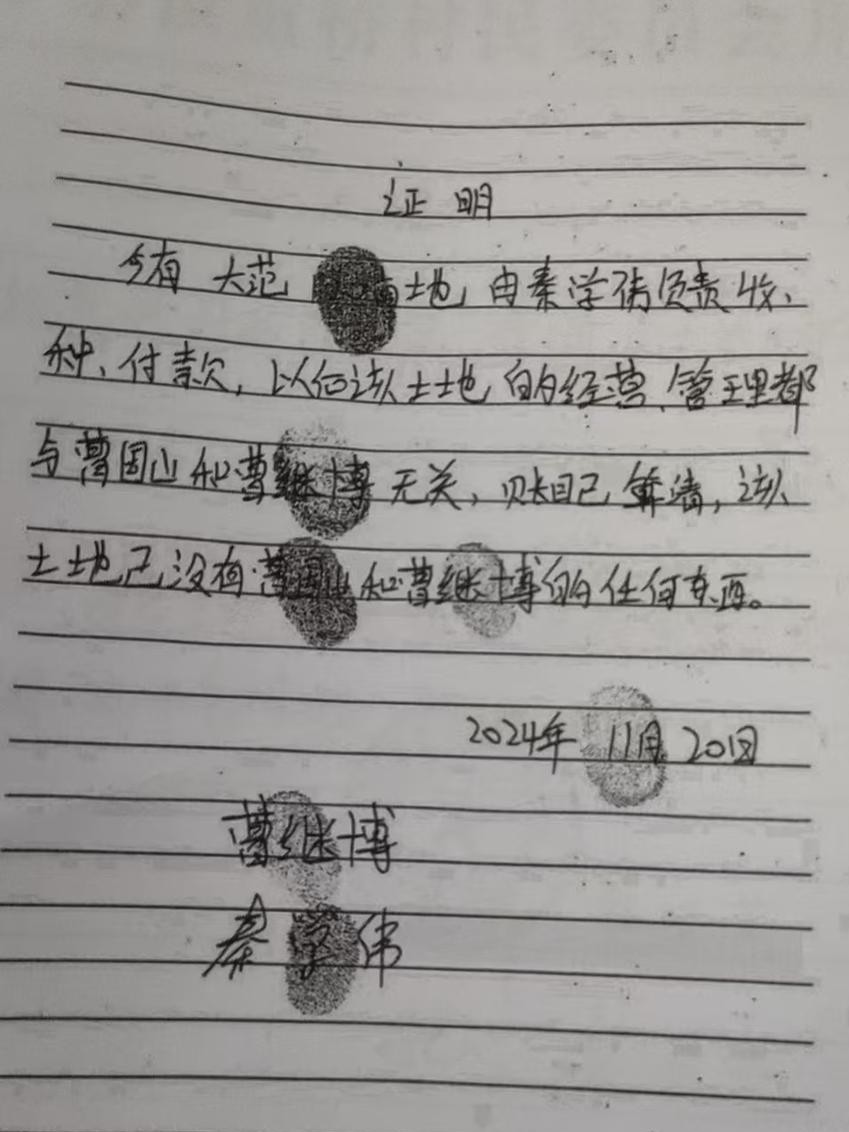 证明
今有 大范 地,由秦学伟负责收、
种、付款,以何该土地的经营、管理都
与曹国山和曹继博无关,账自己算清,该
土地已没有曹国山和曹继博的任何东西。
2024年 11月20日
曹继博
秦学伟